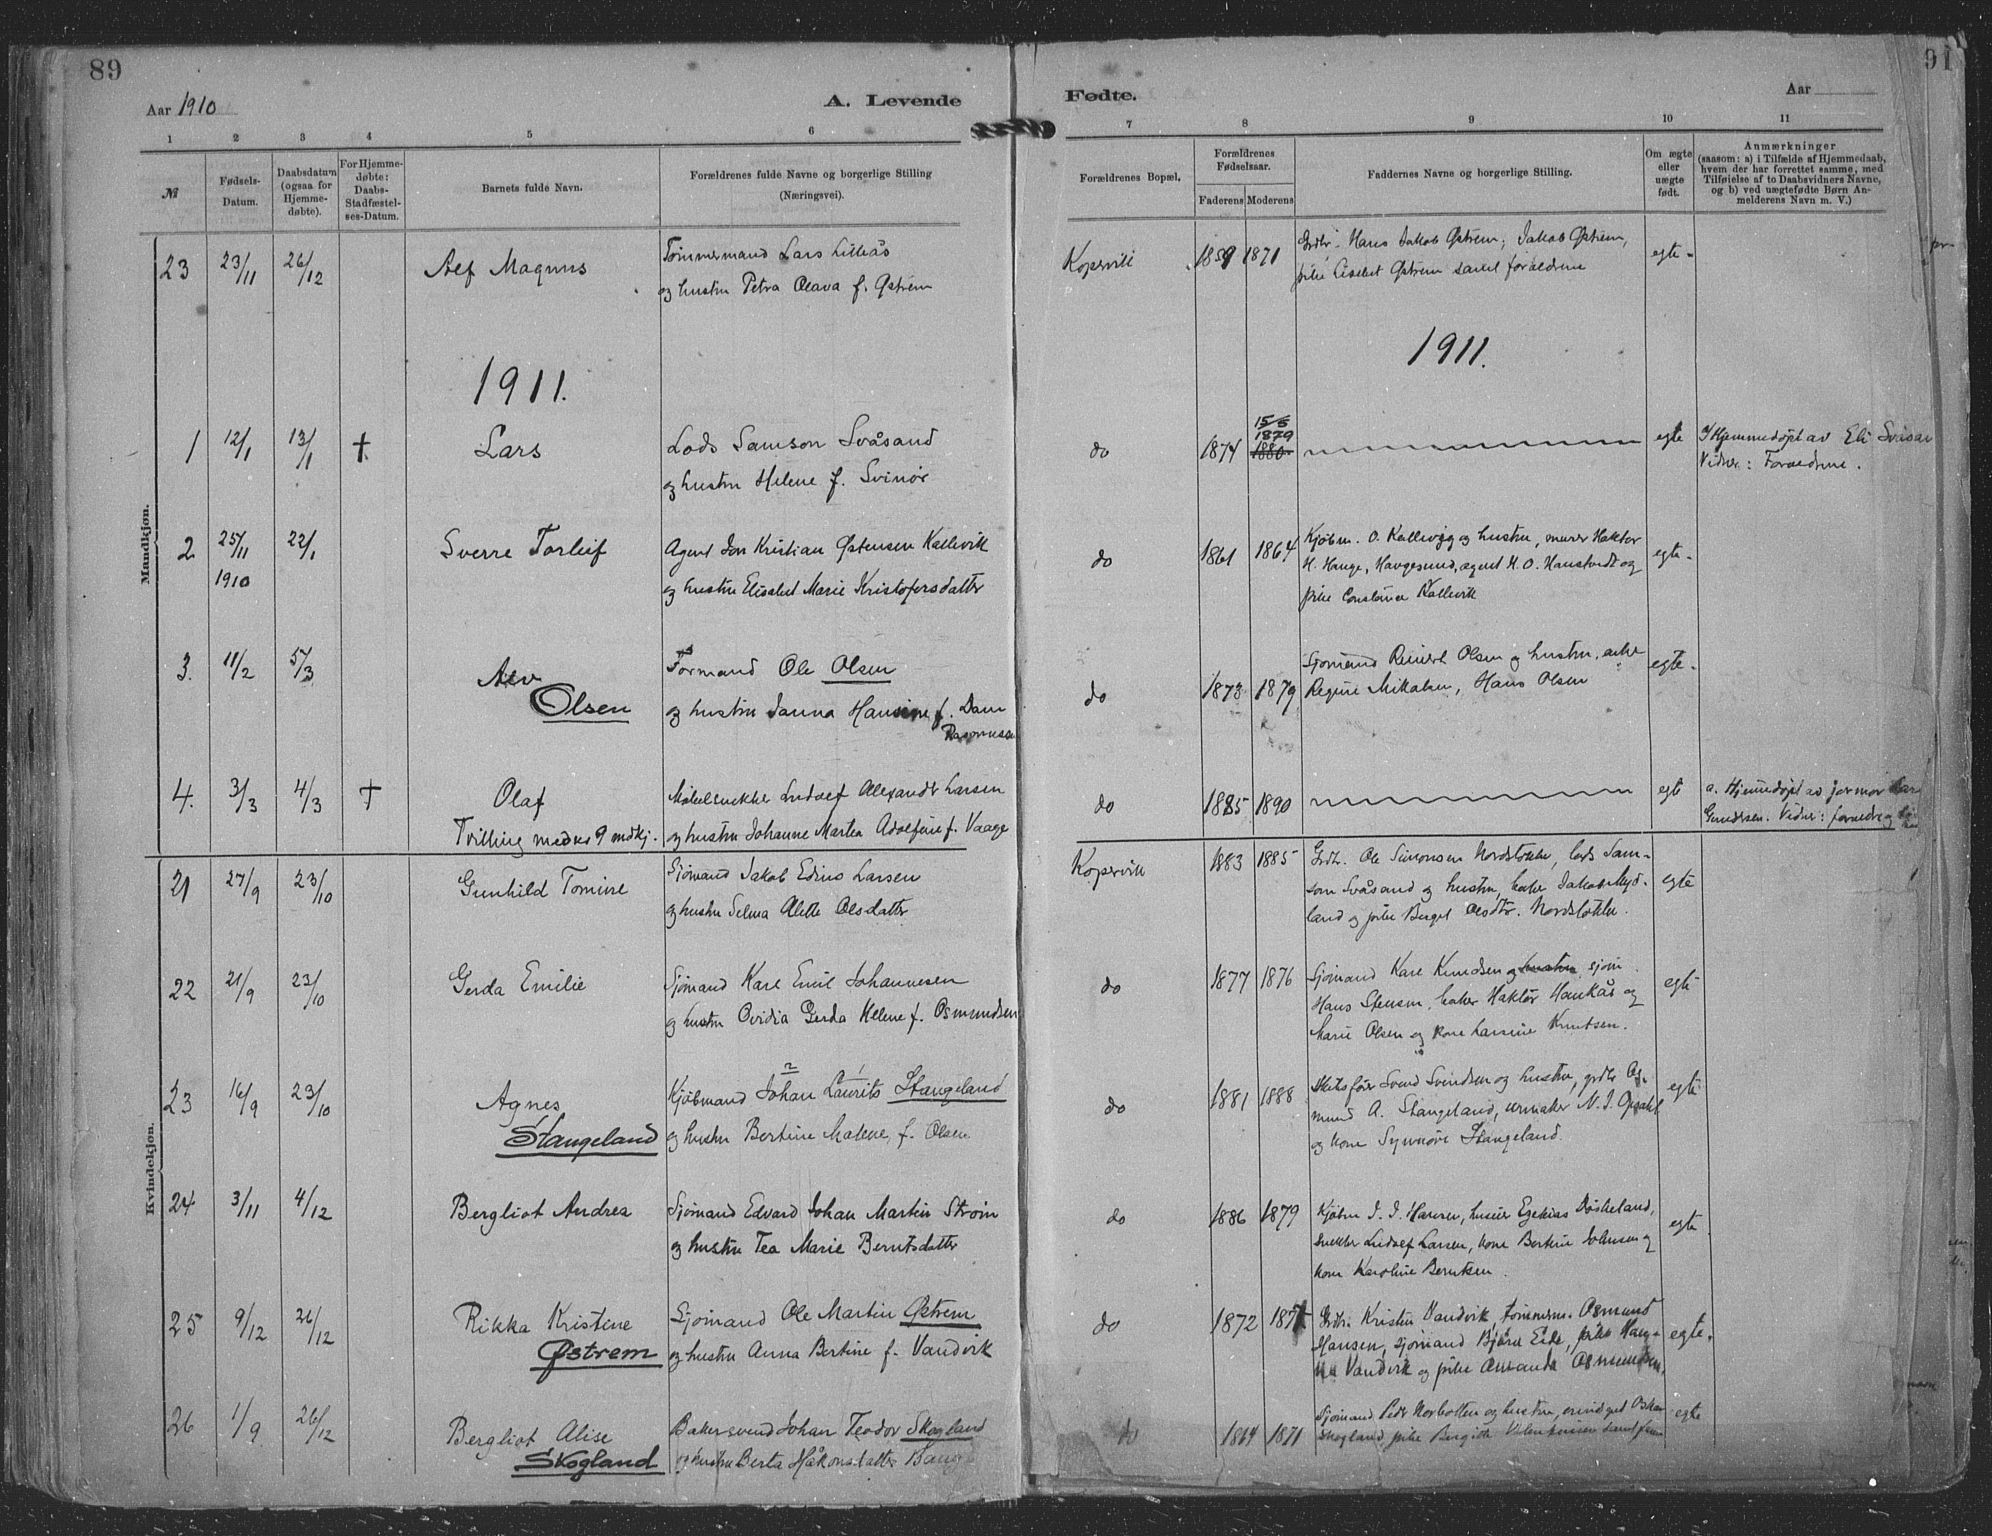 89
91
Aar 1910
A. Levende
Fødte.
Aar
1 2 3 4 5 6 7 8 9 10 11
№
Fødsels-
Datum.
Daabsdatum
(ogsaa for
Hjemme-
døbte).
For Hjemme-
døbte:
Daabs-
Stadfæstel-
ses-Datum.
Barnets fulde Navn.
Forældrenes fulde Navne og borgerlige Stilling
(Næringsvei).
Forældrenes Bopæl.
Forældrenes
Fødselsaar.
Faderens Moderens
Faddernes Navne og borgerlige Stilling.
Om ægte
eller
uægte
født.
Anmærkninger
(saasom: a) i Tilfælde af Hjemmedaab,
hvem der har forrettet samme, med
Tilføielse af to Daabsvidners Navne,
og b) ved uægtefødte Børn An-
melderens Navn m. V.)
Mandkjøn.
23 23/11 26/12 Alf Magnus
Tømmermand Lars Lillås
og hustru Petra Olava f. Østrem
Kopervik 1859 1871
Grdbr. Hans Jakob Østrem, Jakob Østrem,
pike Lisebet Østrem samt forældrene
egte
1911.
1911.
1 12/1 13/1 † Lars
Lods Samson Svåsand
og hustru Helene f. Svinør
do 1874 15/5 1879 1880
egte
Hjemmedøpt av Eli
Vidner: Forældrene.
2 25/11 1910 22/1 Sverre Torleif
Agent Jon Kristian Østensen Kallevik
og hustru Elisabet Marie Kristofersdatter
do 1861 1864
Kjøbm. O. Kallevig og hustru, murer Haktor
H. Hauge, Haugesund, agent H. O. Haustvedt og
pike Constance Kallevik
egte
3. 11/2 5/3 Alv
Olsen
Formand Ole Olsen
og hustru Janna Hansine f. Dam
Rasmussen
do 1873 1879
Sjømand Reinert Olsen og hustru, enke
Regine Mikalsen, Hans Olsen
egte
4. 3/3 4/3 † Olaf
Tvilling med no 9 mdkj.
Møbelsnekker Ludolf Alexander Larsen
og hustru Johanne Martea Adolfine f. Vaage
do 1885 1890
egte
a. Hjemmedøpt av jormor
Gundersen. Vidner: forældre og
Kvindekjøn.
21 27/9 23/10 Gunhild Tomine
Sjømand Jakob Edias Larsen
og hustru Selma Alette Olsdatter
Kopervik 1883 1885
Grdbr. Ole Simonsen Nordstokke, lods Sam-
son Svåsand og hustru, baker Jakob Myd-
land og pike Berget Olsdtr. Nordstokke.
egte
22 21/9 23/10 Gerda Emilie
Sjømand Karl Emil Johannesen
og hustru Ovidia Gerda Helene f. Osmundsen
do 1877 1876
Sjømand Karl Knudsen og hustru, sjøm.
Hans Stensen, baker Haktor Haukås og
Marie Olsen og kone Larsine Knutsen.
egte
23 16/9 23/10 Agnes
Stangeland
Kjøbmand Johan Laurits Stangeland
og hustru Bertine Malene, f. Olsen
do 1881 1888
Skibsfører Svend Svendsen og hustru, grdbr. Os-
mund A. Stangeland, urmaker N. J. Opsahl
og kone Synnøve Stangeland.
egte
24 3/11 4/12 Bergliot Andrea
Sjømand Edvard Johan Martin Strøm
og hustru Tea Marie Berntsdatter
do 1886 1879
Kjøbm J. J. Hansen, huseier Ezekias Røskeland,
snekker Ludolf Larsen, kone Bertine Johnsen og
kone Karoline Berntsen.
egte
25 9/12 26/12 Rikka Kristine
Østrem
Sjømand Ole Martin Østrem
og hustru Anna Bertine f. Vandvik
do 1872 187
Grdbr. Kristen Vandvik, tømmerm. Osmund
Hansen, sjømand Bjørn Eide, pike Han-
na Vandvik og pike Amanda Osmundsen.
egte.
26 1/9 26/12 Bergliot Alise
Skogland
Bakersvend Johan Teodor Skogland
og hustru Berta Håkonsdatter
do 1864 1871
Sjømand Peder Norbotten og hustru,
Skogland, pike Bergitte samt
egte